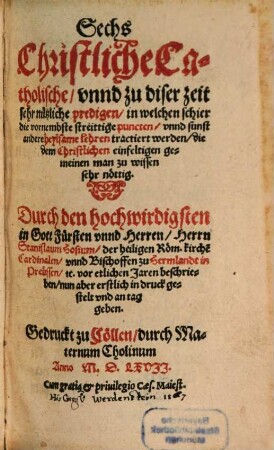 Sechs
Christliche Ca-
tholische/ vnnd zu diser zeit
sehr nützliche predigen/ in welchen schier
die vornembste streittige puncten/ vnnd sunst
andere heylsame lehren tractiert werden/ die
dem Christlichen einfeltigen ge-
meinen man zu wissen
sehr nöttig.
Durch den hochwirdigsten
in Gott Fürsten vnnd Herren/ Herrn
Stanislaum Hosium/ der heiligen Röm. kirchē
Cardinalen/ vnnd Bischoffen zu Hermlandt in
Preüssen/ ꝛc. vor etlichen Jaren beschrie-
ben/ nun aber erstlich in druck ge-
stelt vnd an tag
geben.
Gedruckt zu Cöllen/ durch Ma-
ternum Cholinum
Anno M. D. LXVII.
Cum gratia & priuilegio Cæs. Maiest.
Werdenstein 1567
Bayerische
Staatsbibliothek
München